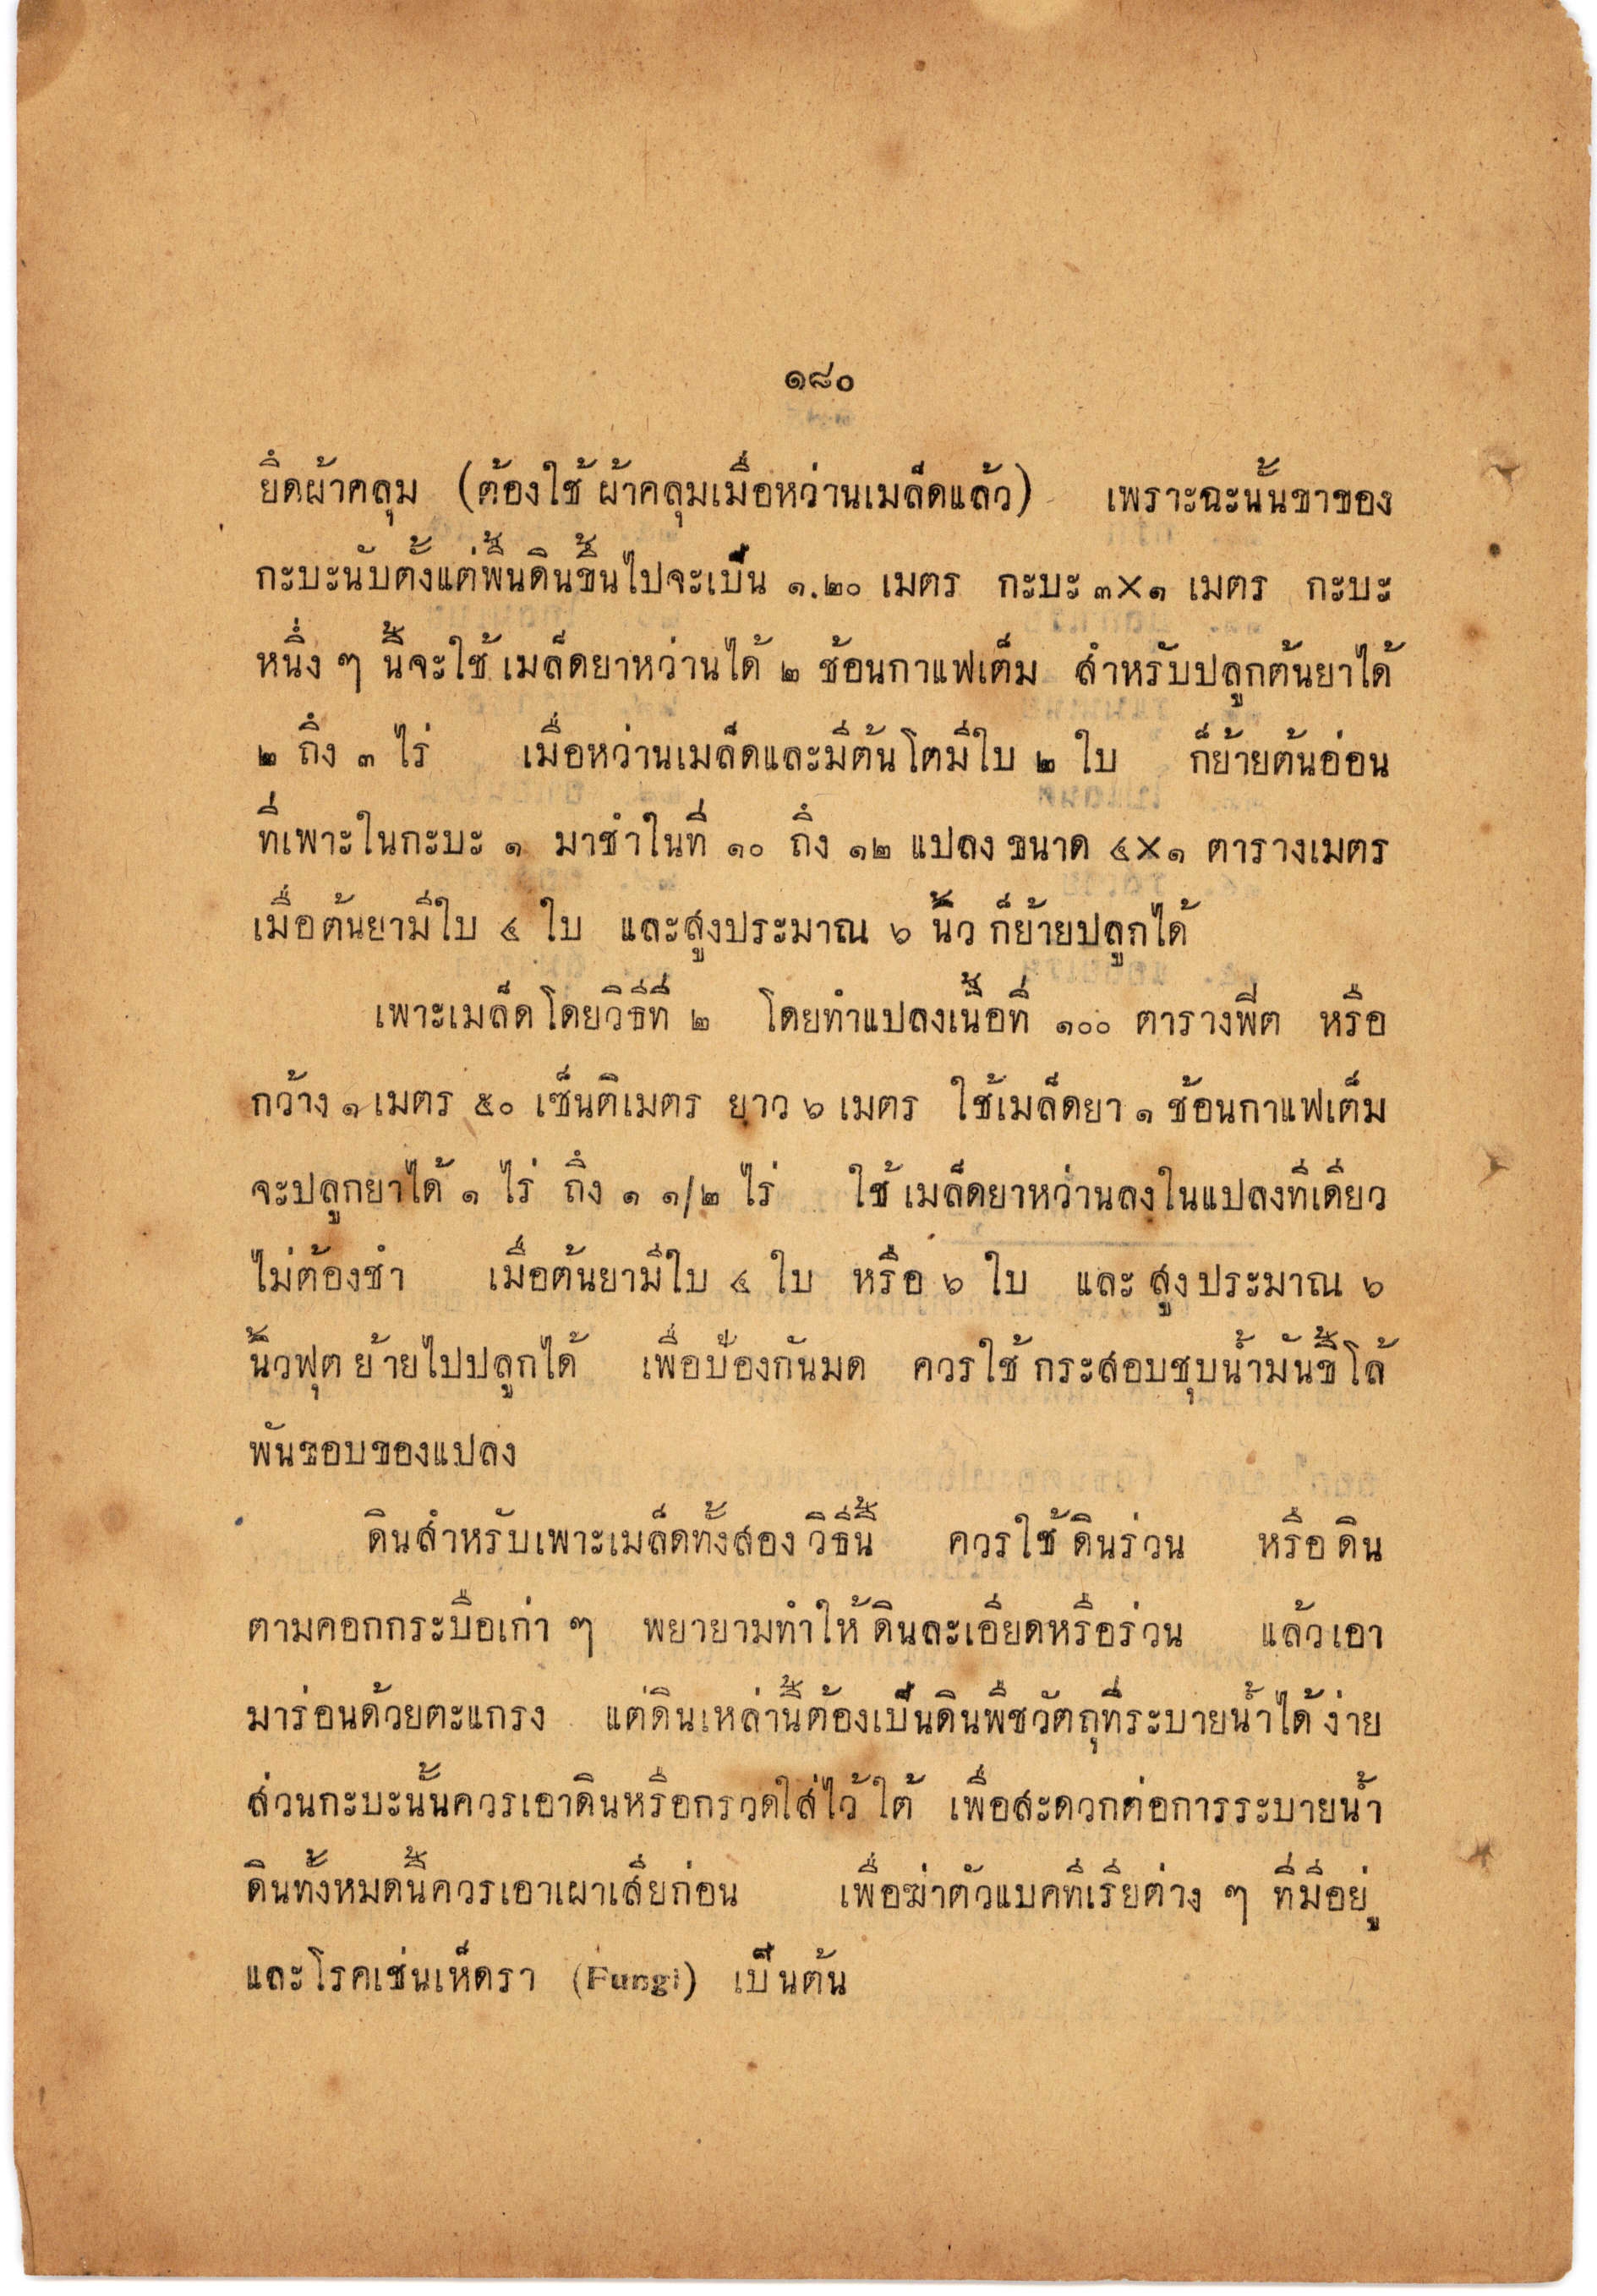 ๑๘๐
ยึดผ้าคลุม (ต้องใช้ ผ้าคลุมเมื่อหว่านเมล็ดแล้ว) เพราะฉะนั้นขาของ
กะบะนับตั้งแต่พื้นดินขึ้นไปจะเป็น ๑.๒๐ เมตร กะบะ ๓×๑ เมตร กะบะ
หนึ่ง ๆ นี้จะใช้ เมล็ดยาหว่านได้ ๒ ช้อนกาแฟเต็ม สำหรับปลูกต้นยาได้
๒ ถึง ๓ ไร่ เมื่อหว่านเมล็ดและมีต้นโตมีใบ ๒ ใบ ก็ย้ายต้นอ่อน
ที่เพาะในกะบะ ๑ มาชำในที่ ๑๐ ถึง ๑๒ แปลง ขนาด ๔×๑ ตารางเมตร
เมื่อต้นยามีใบ ๔ ใบ และสูงประมาณ ๖ นิ้ว ก็ย้ายปลูกได้
เพาะเมล็ดโดยวิธีที่ ๒ โดยทำแปลงเนื้อที่ ๑๐๐ ตารางฟีต หรือ
กว้าง ๑ เมตร ๕๐ เซ็นติเมตร ยาว ๖ เมตร ใช้เมล็ดยา ๑ ช้อนกาแฟเต็ม
จะปลูกยาได้ ๑ ไร่ ถึง ๑ ๑/๒ ไร่ ใช้ เมล็ดยาหว่านลงในแปลงที่เดียว
ไม่ต้องชำ เมื่อต้นยามีใบ ๔ ใบ หรือ ๖ ใบ และ สูงประมาณ ๖
นิ้วฟุต ย้ายไปปลูกได้ เพื่อป้องกันมด ควรใช้ กระสอบชุบน้ำมันขี้โล้
พันขอบของแปลง
ดินสำหรับเพาะเมล็ดทั้งสองวิธีนี้ ควรใช้ ดินร่วน หรือ ดิน
ตามคอกกระบือเก่า ๆ พยายามทำให้ ดินละเอียดหรือร่วน แล้วเอา
มาร่อนด้วยตะแกรง แต่ดินเหล่านี้ต้องเป็นดินพืชวัตถุที่ระบายน้ำได้ ง่าย
ส่วนกะบะนั้นควรเอาดินหรือกรวดใส่ไว้ ใต้ เพื่อสะดวกต่อการระบายน้ำ
ดินทั้งหมดนี้ควรเอาเผาเสียก่อน เพื่อฆ่าตัวแบคทีเรียต่าง ๆ ที่มีอยู่
และโรคเช่นเห็ดรา (Fungi) เป็นต้น